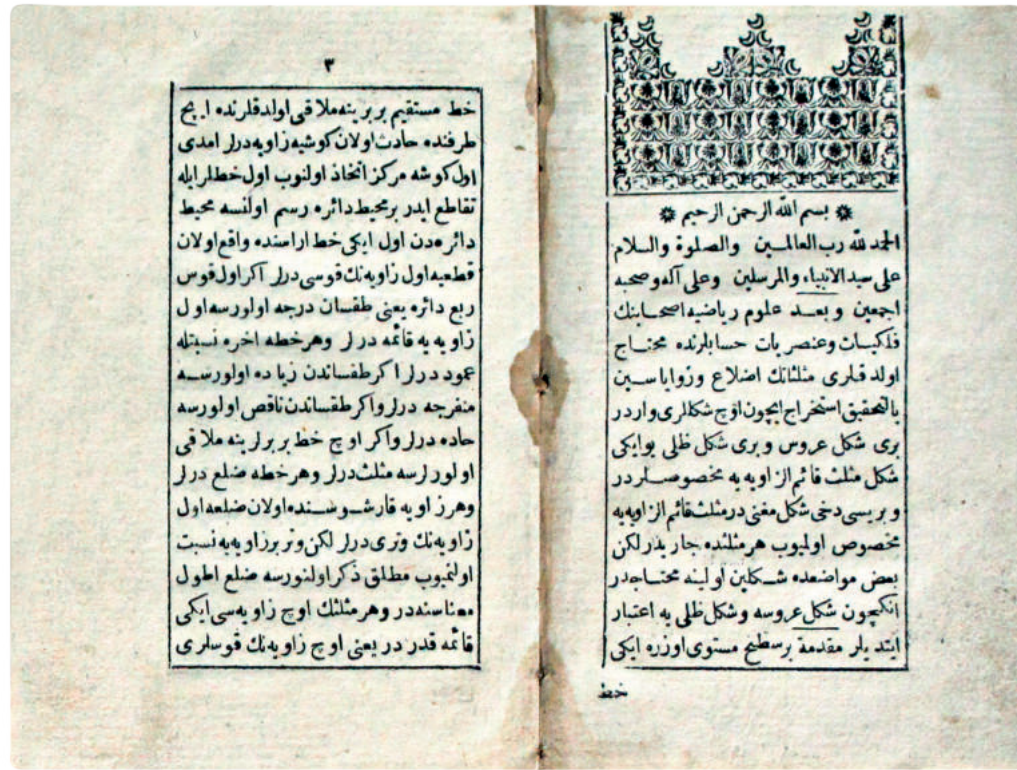 بسم الله الرحمن الرحيم
الحمد لله رب العالمين والصلوة والسلام
على سيد الانبياء والمرسلين وعلى آله وصحبه
اجمعين وبعد علوم رياضيه اصحابنك
فلكيات وعنصريات حسابلرنده محتاج
اولدقلرى مثلثاتك اضلاع وزواياسين
بالتحقيق استخراج ايچون اوچ شكللرى واردر
برى شكل عروس وبرى شكل ظلى بوايكى
شكل مثلث قائم الزاويه يه مخصوصلردر
و بريسى دخى شكل مغنى درمثلث قائم الزاويه يه
مخصوص اولميوب هرمثلثده جاريدر لكن
بعض مواضعده شكلين اولينه محتاجدر
انكيچون شكل عروسه وشكل ظلى يه اعتبار
ايتديلر مقدمة برسطح مستوى اوزره ايكى
خط
٣
خط مستقيم بربرينه ملاقى اولدقلرنده ايچ
طرفنده حادث اولان كوشيه زاويه درلر امدى
اول كوشه مركز اتخاذ اولنوب اول خطلرايله
تقاطع ايدر برمحيط دائره رسم اولنسه محيط
دائره دن اول ايكى خط اراسنده واقع اولان
قطعيه اول زاويه نك قوسى درلر اكر اول قوس
ربع دائره يعنى طقسان درجه اولورسه اول
زاويه يه قائمه درلر وهرخطه اخره نسبتله
عمود درلر اكر طقساندن زياده اولورسه
منفرجه درلر واكر طقساندن ناقص اولورسه
حاده درلر واكر اوچ خط بربرلرينه ملاقى
اولورلرسه مثلث درلر وهرخطه ضلع درلر
وهرزاويه قارشوسنده اولان ضلعه اول
زاويه نك وترى درلر لكن وتر برزاويه يه نسبت
اولنميوب مطلق ذكر اولنورسه ضلع اطول
معناسنه در وهرمثلثك اوچ زاويه سى ايكى
قائمه قدر در يعنى اوچ زاويه نك قوسلرى